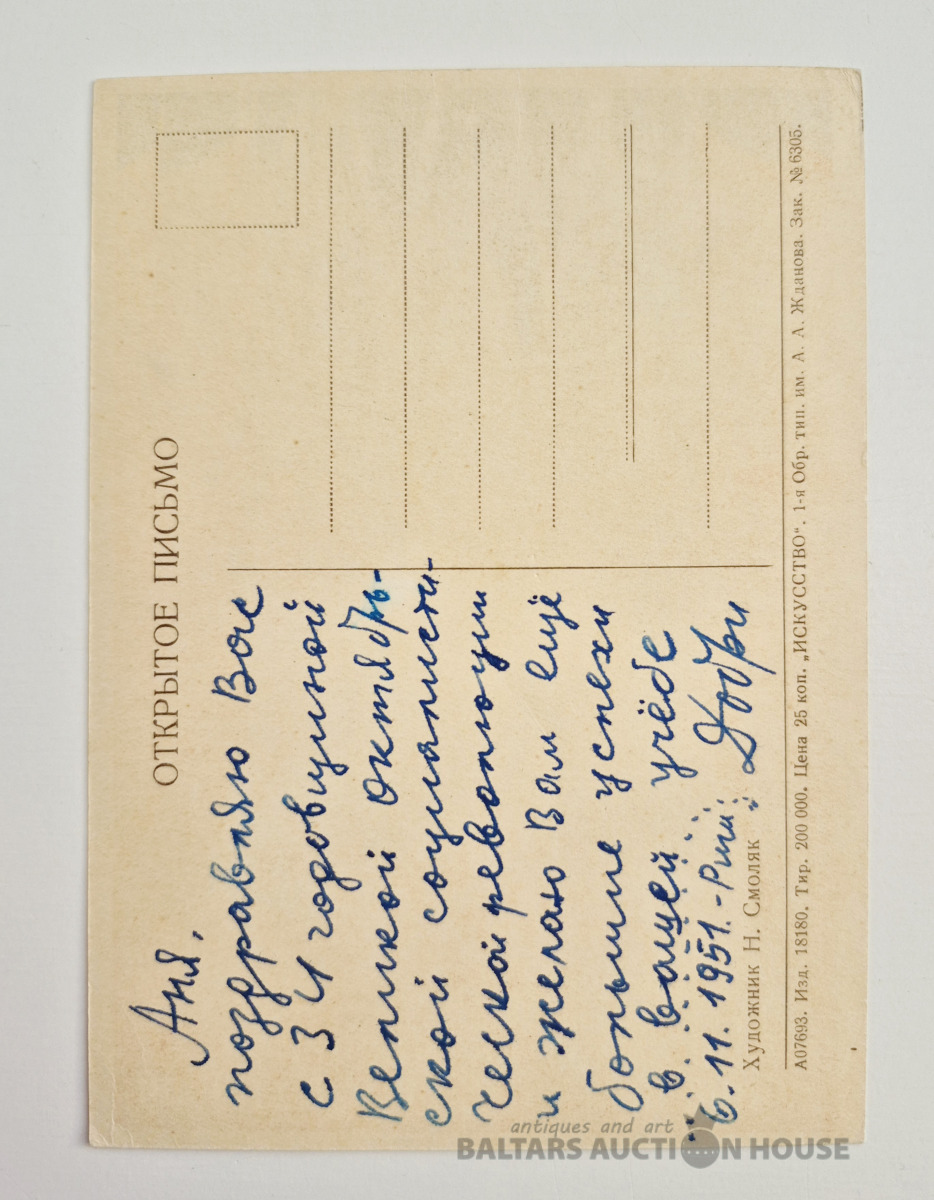 ОТКРЫТОЕ ПИСЬМО
Аня,
поздравляю Вас
с 34 годовщиной
Великой октябрь-
ской социалисти-
ческой революции
и желаю Вам ещё
больше успехи
в вашей учёбе
6.11.1951.-
Художник Н. Смоляк
А07693. Изд. 18180. Тир. 200 000. Цена 25 коп. „ИСКУССТВО“. 1-я Обр. тип. им. А. А. Жданова. Зак. № 6305.
antiques and art
BALTARS AUCTION HOUSE